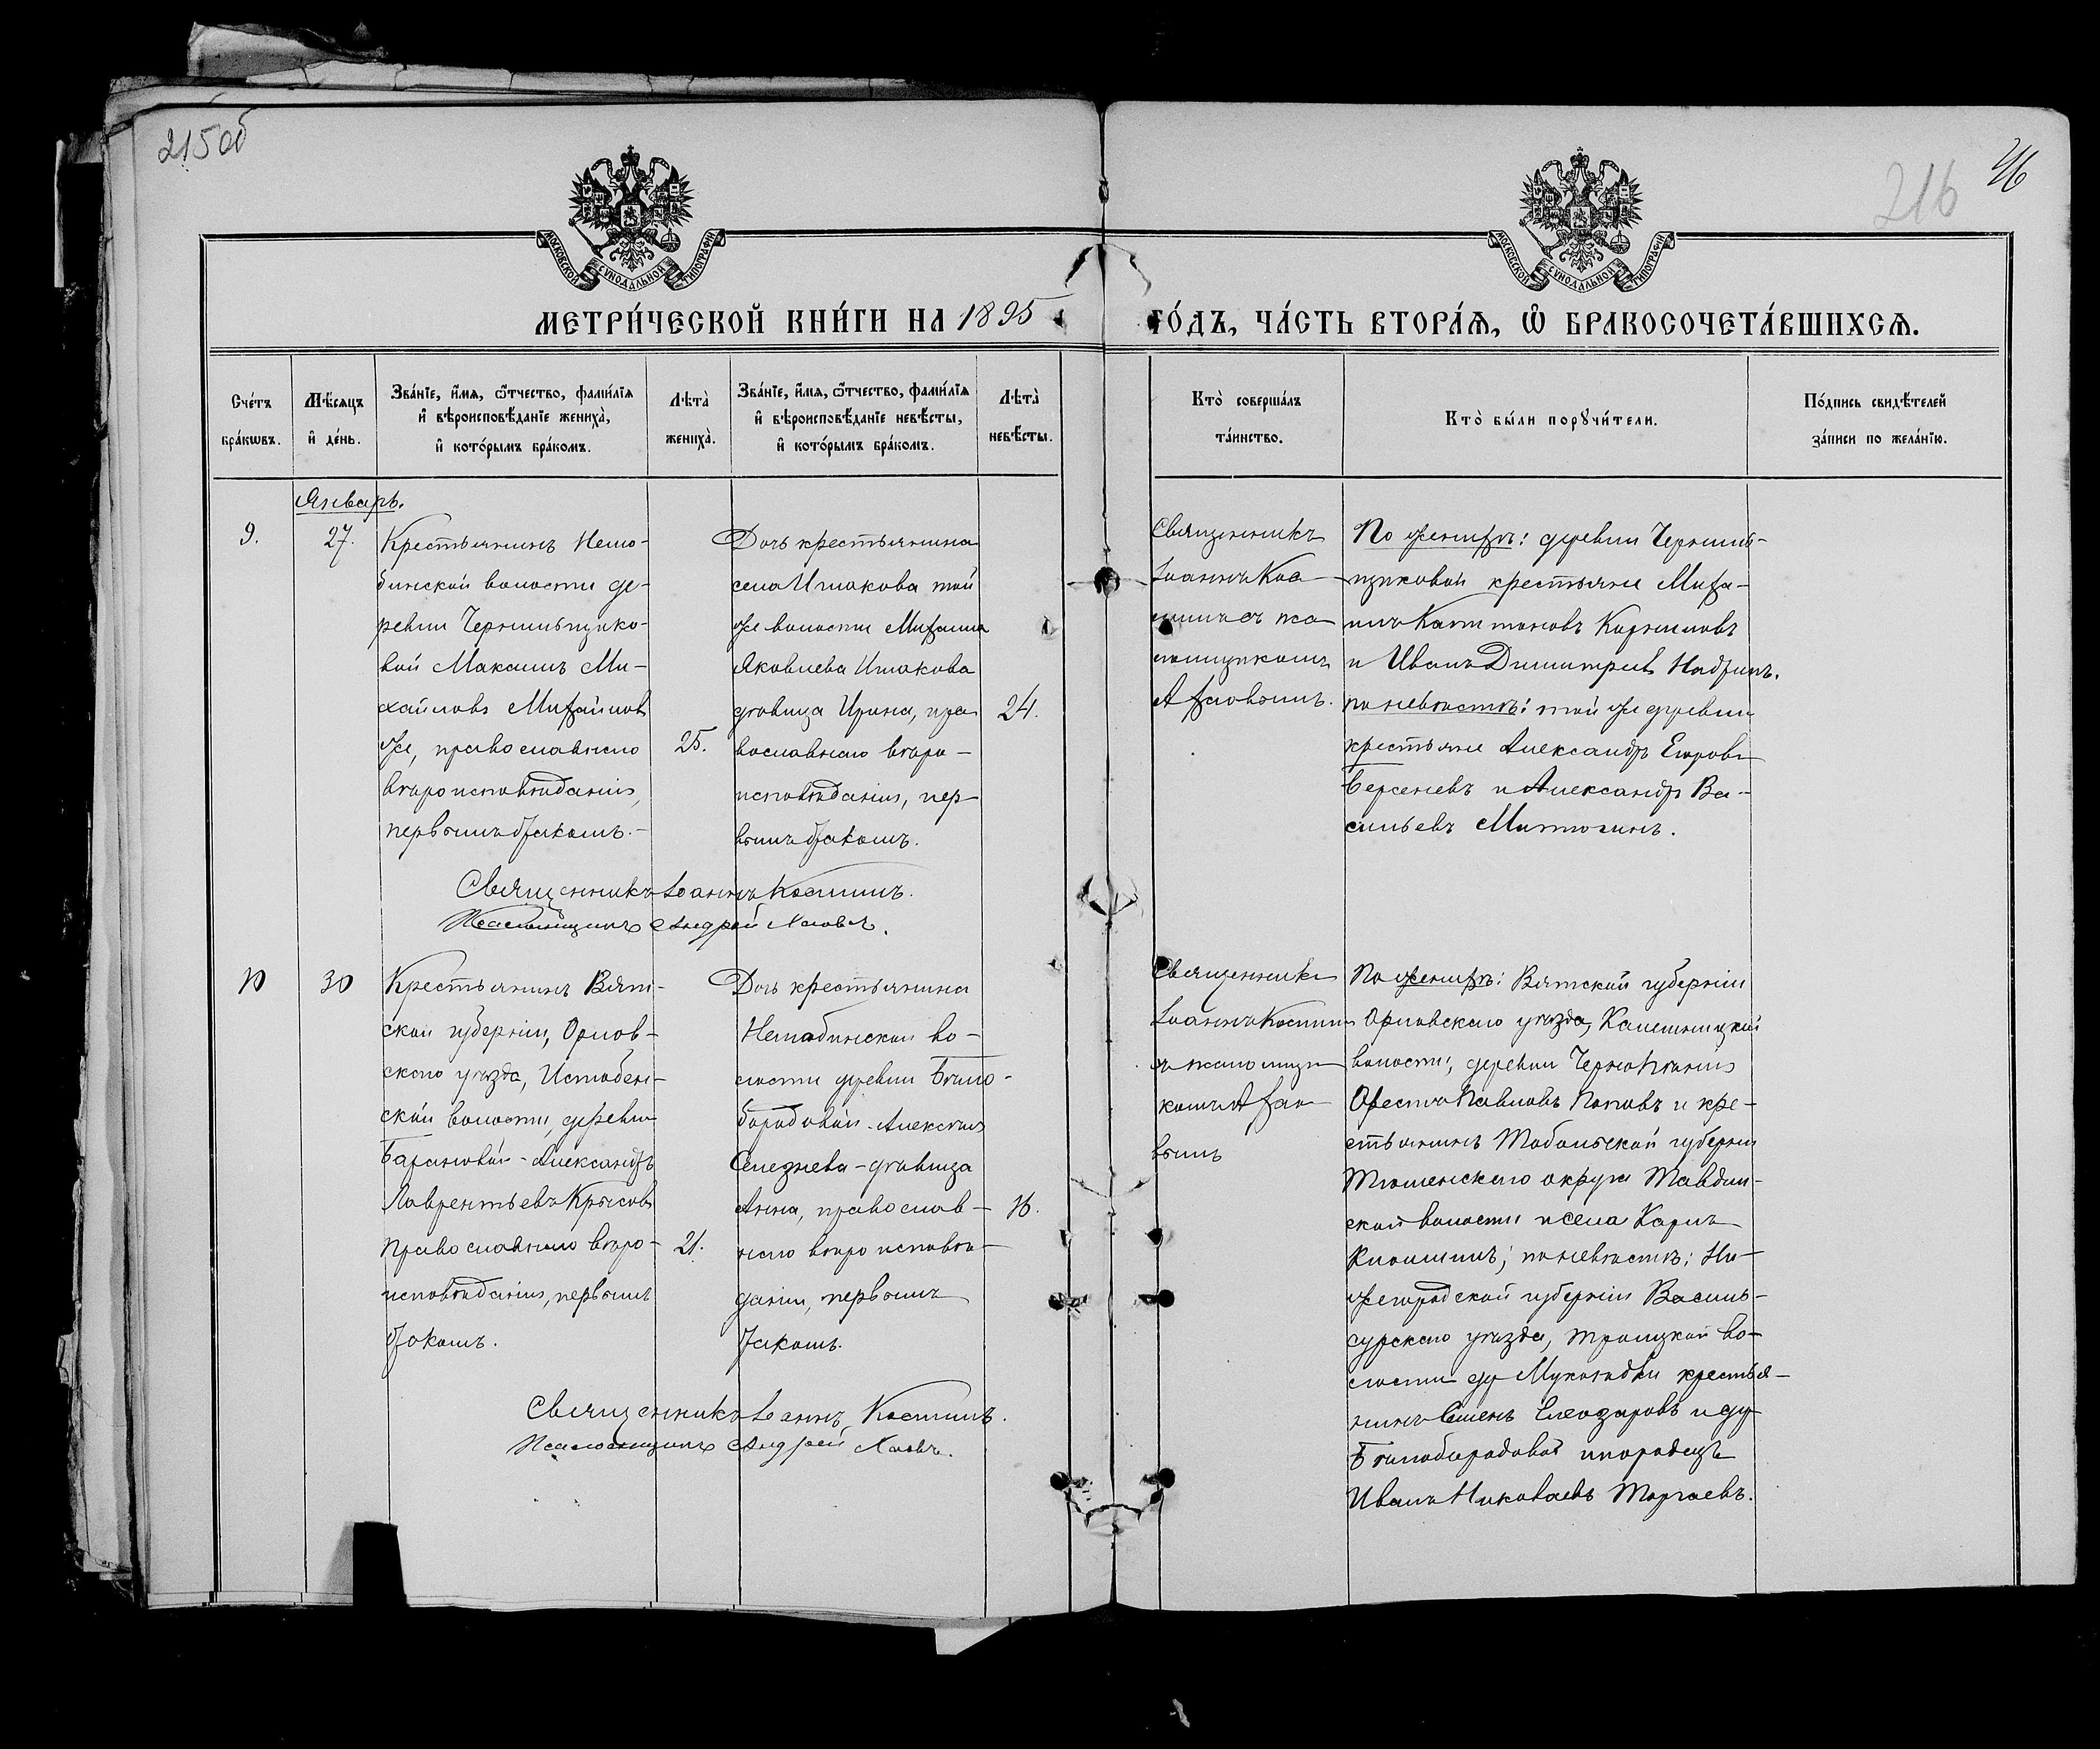 215об
216
46
МОСКОВСКОЙ СѴНОДАЛЬНОЙ ТИПОГРАФІИ
МОСКОВСКОЙ СѴНОДАЛЬНОЙ ТИПОГРАФІИ
МЕТРИ́ЧЕСКОЙ КНИ́ГИ НА 1895
ГО́ДЪ, ЧА́СТЬ ВТОРА́Ѧ, Ѽ БРАКОСОЧЕТА́ВШИХСѦ.
Сче́тъ
бра́кωвъ.
Мѣ́сяцъ
и҆ де́нь.
Зва́нїе, и҆́мя, ѻ҆́тчество, фами́лїя
и҆ вѣроисповѣ́данїе жениха̀,
и҆ кото́рымъ бра́комъ.
Лѣта̀
жениха̀.
Зва́нїе, и҆́мя, ѻ҆́тчество, фами́лїя
и҆ вѣроисповѣ́данїе невѣ́сты,
и҆ кото́рымъ бра́комъ.
Лѣта̀
невѣ́сты.
Кто̀ соверша́лъ
та́инство.
Кто̀ бы́ли порꙋчи́тели.
По́дпись свидѣ́телей
за́писи по жела́нїю.
Январь.
9.
27.
Крестьянинъ Нело-
бинской волости де-
ревни Чернильщико-
вой Максимъ Ми-
хайловъ Михайловъ
же, православнаго
вѣроисповѣданія,
первымъ бракомъ.-
25.
Дочь крестьянина
села Ишакова той
же волости Михаила
Яковлева Ишакова
дѣвица Ирина, пра
вославнаго вѣро-
исповѣданія, пер-
вымъ бракомъ.
24.
Священникъ
Іоаннъ Кос
минъ съ пса
ломщикомъ
По женихѣ: деревни Чернильщиковой крестьяне Миха-
илъ Капитоновъ Корниловъ
и Иванъ Димитріевъ
по невѣстѣ: той же деревни
крестьяне Александръ Егоровъ
Берсеневъ и Александръ Ва-
сильевъ Митюгинъ.
Священникъ Іоаннъ Косминъ.
Псаломщикъ Андрей
10
30
Крестьянинъ Вят-
ской губерніи, Орлов-
скаго уѣзда, Истобен-
ской волости, деревни
Барановой - Александръ
Лаврентьевъ Крысовъ
православнаго вѣро-
исповѣданія, первымъ
бракомъ.
21.
Дочь крестьянина
Нелобинской во-
лости деревни Бѣло-
бородовой Алексѣя
Селезнева - дѣвица
Анна, православ-
наго вѣроисповѣ-
данія, первымъ
бракомъ.
16.
Священникъ
Іоаннъ Косминъ
съ псаломщи
комъ
По женихѣ: Вятской губерніи
Орловскаго уѣзда,
волости, деревни
Орестъ Павловъ Поповъ и кре-
стьянинъ Тобольской губерніи
Тюменскаго округа Тавдин-
ской волости и села Карпъ
по невѣстѣ: Ни-
жегородской губерніи Василь-
сурскаго уѣзда, Троицкой во-
лости др крестья-
нинъ Семенъ Елеазаровъ и др
Бѣлобородовой инородецъ
Иванъ Николаевъ Торгаевъ.
Священникъ Іоаннъ Косминъ.
Псаломщикъ Андрей